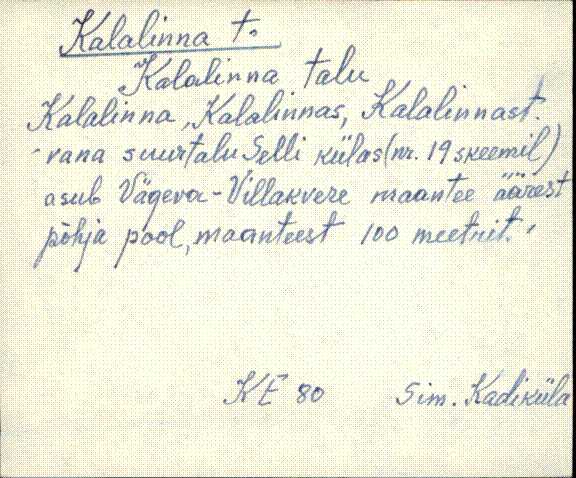 Kalalinna t.
Kalalinna talu
Kalalinna, Kalalinnas, Kalalinnast.
- vana suurtalu Selli külas (nr. 19 skeemil)
asub Vägeva-Villakvere maantee äärest
põhja pool, maanteest 100 meetrit.
KE 80 Sim. Kadiküla